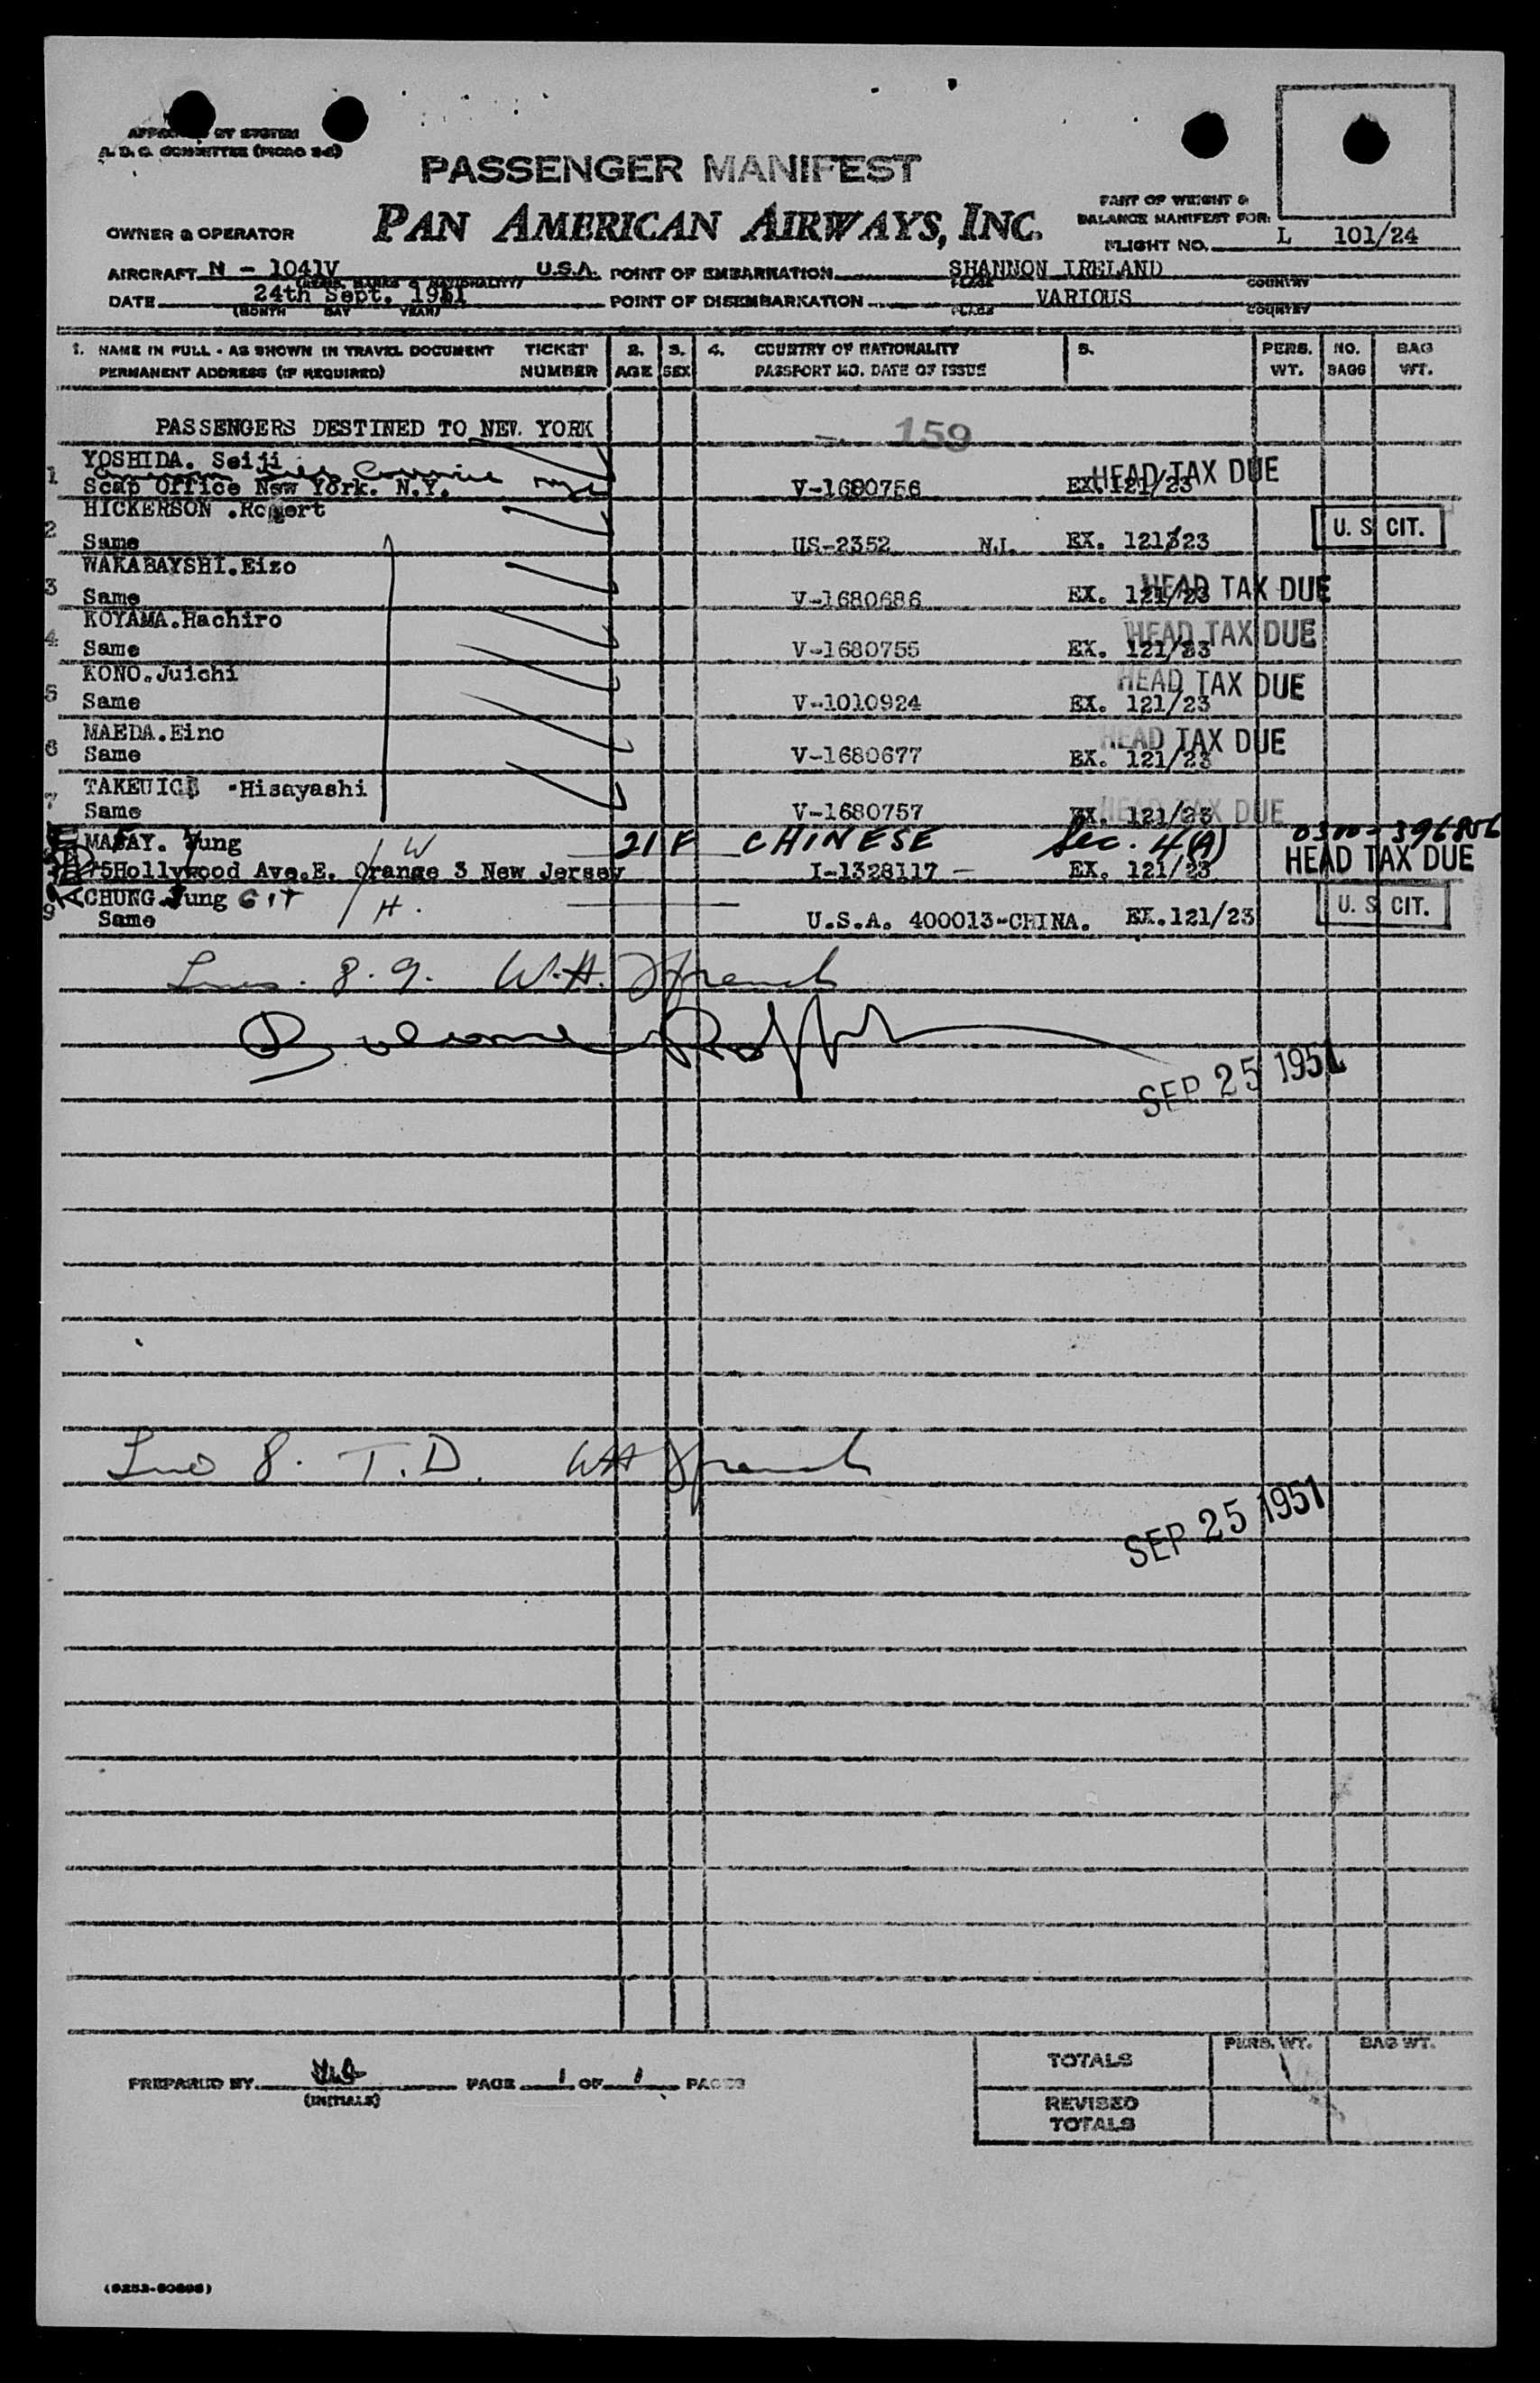 PASSENGER MANIFEST
OWNER & OPERATOR
PAN AMERICAN AIRWAYS, INC.
PART OF WEIGHT &
BALANCE MANIFEST FOR:
FLIGHT NO. L 101/24
AIRCRAFT N - 1041V U.S.A. POINT OF EMBARKATION SHANNON IRELAND
PLACE COUNTRY
DATE 24th Sept. 1951 POINT OF DISEMBARKATION VARIOUS
(MONTH DAY YEAR) PLACE COUNTRY
1. NAME IN FULL - AS SHOWN IN TRAVEL DOCUMENT TICKET 2. 3. 4. COUNTRY OF NATIONALITY 5. PERS. NO. BAG
PERMANENT ADDRESS (IF REQUIRED) NUMBER AGE SEX PASSPORT NO. DATE OF ISSUE WT. BAGS WT.
PASSENGERS DESTINED TO NEW. YORK 159
1 YOSHIDA. Seiji HEAD TAX DUE
Scap Office New York. N.Y. V-1680756 EX. 121/23
2 HICKERSON .Robert U. S. CIT.
Same US-2352 N.J. EX. 121/23
3 WAKABAYSHI.Eizo HEAD TAX DUE
Same V-1680686 EX. 121/23
4 KOYAMA.Hachiro HEAD TAX DUE
Same V-1680755 EX. 121/23
5 KONO.Juichi HEAD TAX DUE
Same V-1010924 EX. 121/23
6 MAEDA.Eino HEAD TAX DUE
Same V-1680677 EX. 121/23
7 TAKEUICH -Hisayashi HEAD TAX DUE
Same V-1680757 EX. 121/23
Yung W 21 F CHINESE Sec. 4(A) 0300-396806
75Hollywood Ave.E. Orange 3 New Jersey I-1328117 - EX. 121/23 HEAD TAX DUE
9 CHUNG Yung CIT H. U. S. CIT.
Same U.S.A. 400013-CHINA. EX.121/23
8. 9. W.H. French
SEP 25 1951
8. T.D. WH French
SEP 25 1951
TOTALS PERS. WT. BAG WT.
PREPARED BY PAGE 1 OF 1 PAGES
(INITIALS)
REVISED
TOTALS